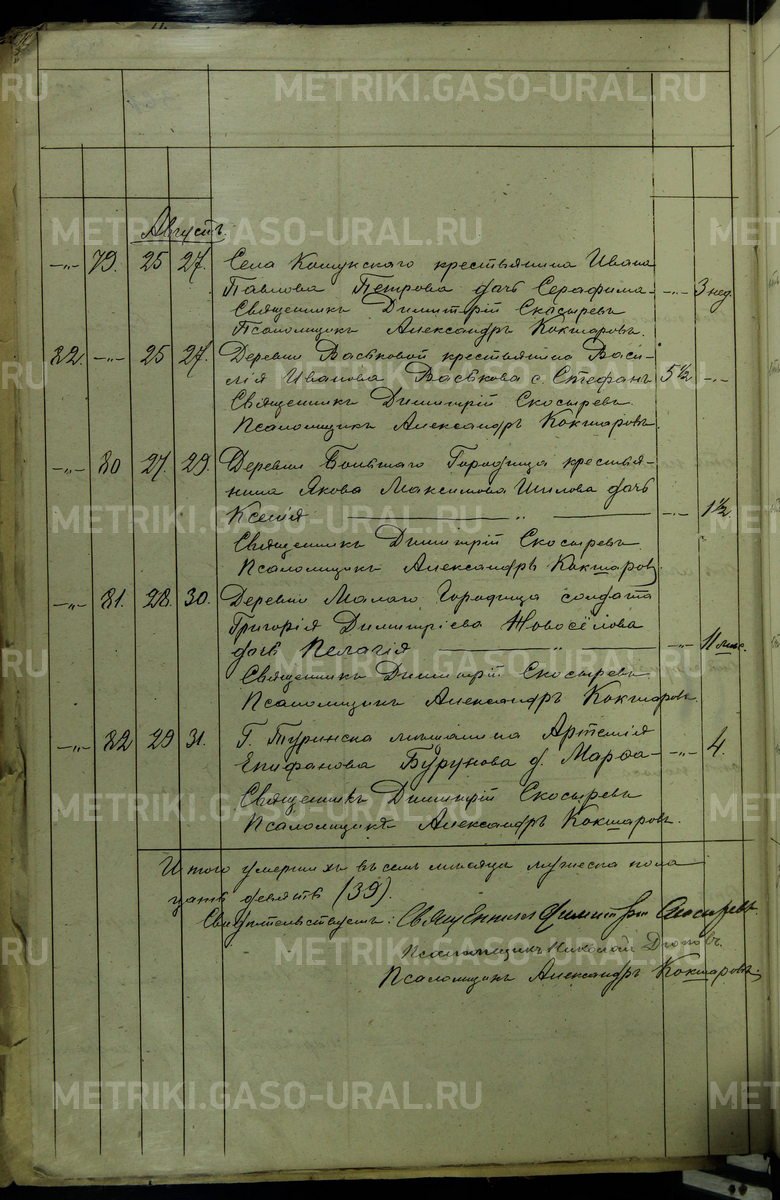 Августъ.
—„— 79. 25 27. Села Кошукскаго крестьянина Ивана
Павлова Петрова дочь Серафима —„— 3 нед.
Священникъ Димитрій Скосыревъ
Псаломщикъ Александръ Кокшаровъ.
82. —„— 25 27. Деревни Васьковой крестьянина Васи-
лія Иванова Васькова с. Стефанъ 5 ½ —„—
Священникъ Димитрій Скосыревъ.
Псаломщикъ Александръ Кокшаровъ.
—„— 80 27. 29. Деревни Большаго Городища крестья-
нина Якова Максимова Шилова дочь
Ксенія —„— —„— 1 ½.
Священникъ Димитрій Скосыревъ.
Псаломщикъ Александръ Кокшаровъ
—„— 81. 28. 30. Деревни Малаго Городища солдата
Григорія Димитріева Новосёлова
дочь Пелагія —„— —„— 11 мѣс.
Священникъ Димитрій Скосыревъ
Псаломщикъ Александръ Кокшаровъ.
—„— 82 29 31. Г. Туринска мѣщанина Артемія
Епифанова Бурунова д. Марѳа —„— 4.
Священникъ Димитрій Скосыревъ
Псаломщикъ Александръ Кокшаровъ.
Итого умершихъ въ семъ мѣсяцѣ мужеска пола
девять (39).
Свидѣтельствуемъ: Священникъ Димитрій Скосыревъ.
Псаломщикъ Николай
Псаломщикъ Александръ Кокшаровъ.
METRIKI.GASO-URAL.RU